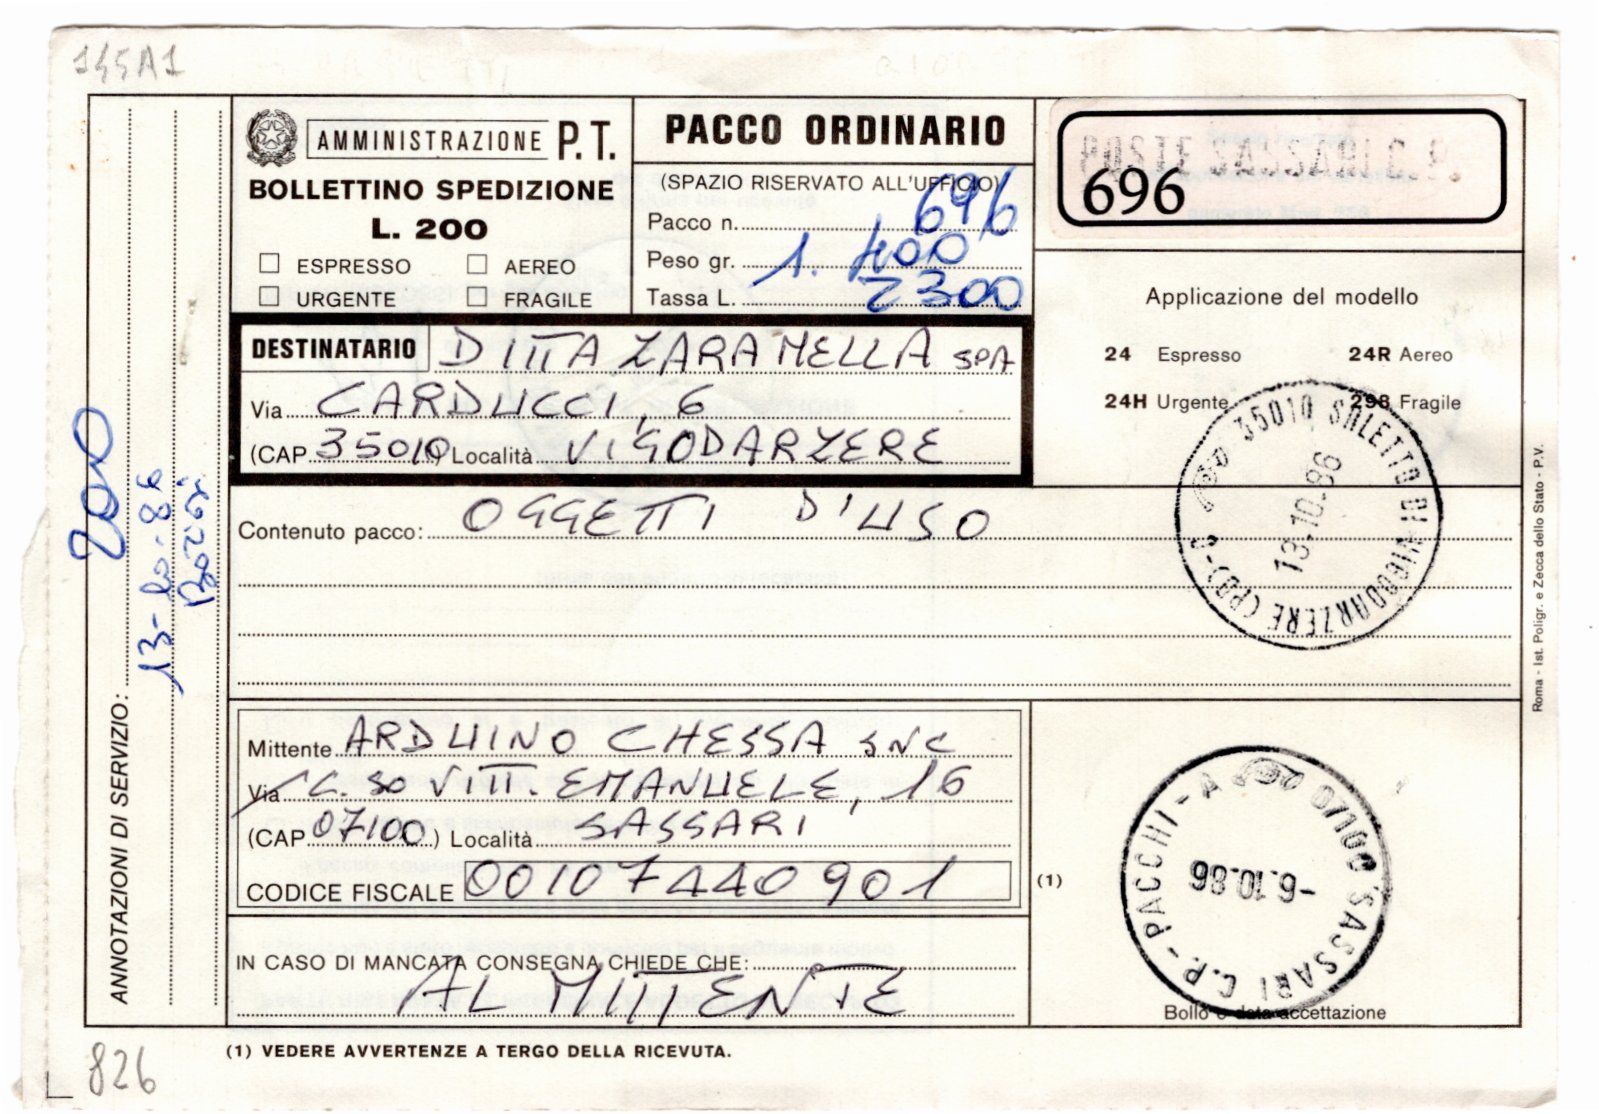 145A1
AMMINISTRAZIONE P.T.
BOLLETTINO SPEDIZIONE
L. 200
ESPRESSO AEREO
URGENTE FRAGILE
PACCO ORDINARIO
(SPAZIO RISERVATO ALL'UFFICIO)
Pacco n. 696
Peso gr. 1.400
Tassa L. 2300
POSTE SASSARI C.P.
696
Applicazione del modello
24 Espresso 24R Aereo
24H Urgente 29B Fragile
DESTINATARIO DITTA ZARAMELLA SPA
Via CARDUCCI, 6
(CAP 35010) Località VIGODARZERE
35010 SALETTO DI VIGODARZERE (PD)
13.10.86
Contenuto pacco: OGGETTI D'USO
ANNOTAZIONI DI SERVIZIO:
13-10-86
Mittente ARDUINO CHESSA SNC
Via C.SO VITT. EMANUELE, 16
(CAP 07100) Località SASSARI
CODICE FISCALE 00107440901
(1)
07100 SASSARI C.P. - PACCHI - A
-6.10.86
Bollo e data accettazione
IN CASO DI MANCATA CONSEGNA CHIEDE CHE:
AL MITTENTE
(1) VEDERE AVVERTENZE A TERGO DELLA RICEVUTA.
Roma - Ist. Poligr. e Zecca dello Stato - P.V.
826